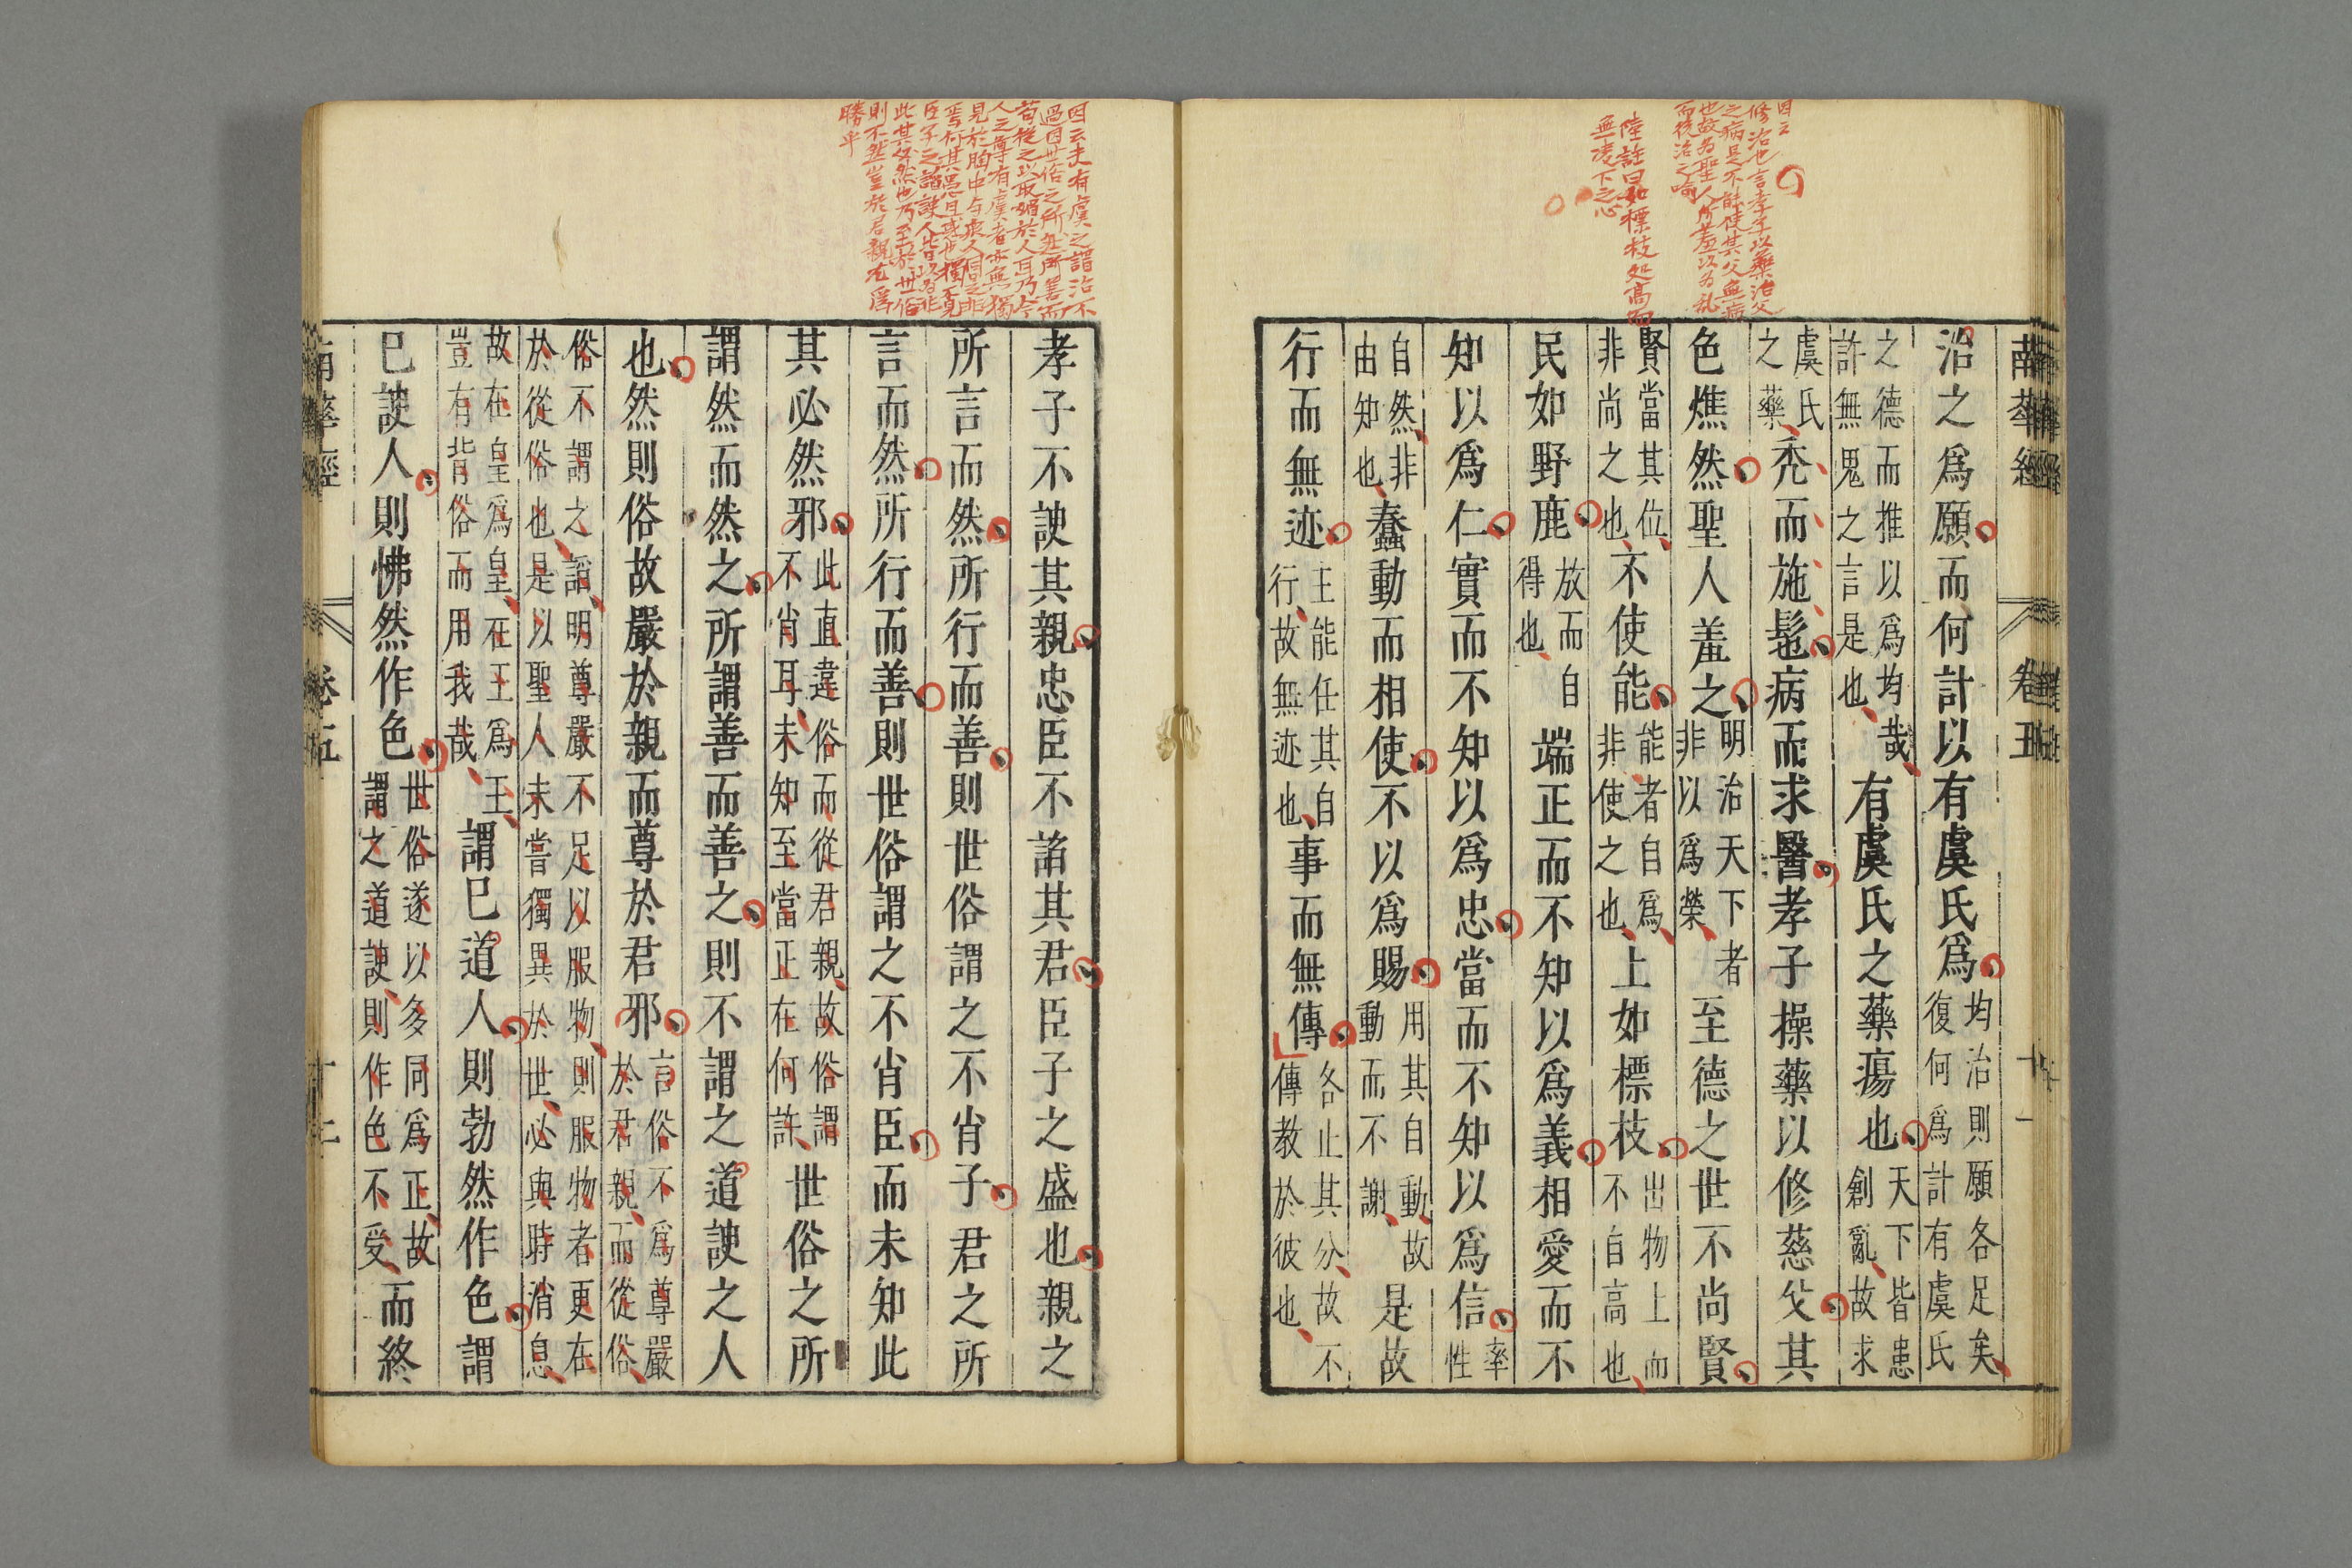 南華經 卷五 十一
治之爲願而何計以有虞氏爲均治則願各足矣復何爲計有虞氏
之德而推以爲均哉許無鬼之言是也有虞氏之藥瘍也天下皆患創亂故求
虞氏之藥禿而施髢病而求醫孝子操藥以修慈父其
色燋然聖人羞之明治天下者非以爲榮至德之世不尚賢
賢當其位非尚之也不使能能者自爲非使之也上如標枝出物上而不自高也
民如野鹿放而自得也端正而不知以爲義相愛而不
知以爲仁實而不知以爲忠當而不知以爲信率性
自然非由知也蠢動而相使不以爲賜用其自動故動而不謝是故
行而無迹王能任其自行故無迹也事而無傳各止其分故不傳教於彼也
修治也言孝子以藥治父
之病是不能使其父無病
也故爲聖人所羞以爲亂
而後治之喻
陸註曰如標枝处高而
無凌下之心
孝子不諛其親忠臣不諂其君臣子之盛也親之
所言而然所行而善則世俗謂之不肖子君之所
言而然所行而善則世俗謂之不肖臣而未知此
其必然邪此直違俗而從君親故俗謂不肖耳未知至當正在何許世俗之所
謂然而然之所謂善而善之則不謂之道諛之人
也然則俗故嚴於親而尊於君邪言俗不爲尊嚴於君親而從俗
俗不謂之諂明尊嚴不足以服物則服物者更在於從俗也是以聖人未嘗獨異於世必與時消息
故在皇爲皇在王爲王豈有背俗而用我哉謂己道人則勃然作色謂
己諛人則怫然作色世俗遂以多同爲正故謂之道諛則作色不受而終
南華經 卷五 十二
因云夫有虞之謂治不
過因世俗之所然所善而
苟從之以取媚於人耳乃今
人之尊有虞者亦無獨
見於胸中与衆人同之
焉何其愚且惑也獨不見
臣子之諂諛人皆以爲非
此其必然也乃至於世俗
則不然豈於君親有爲
勝乎